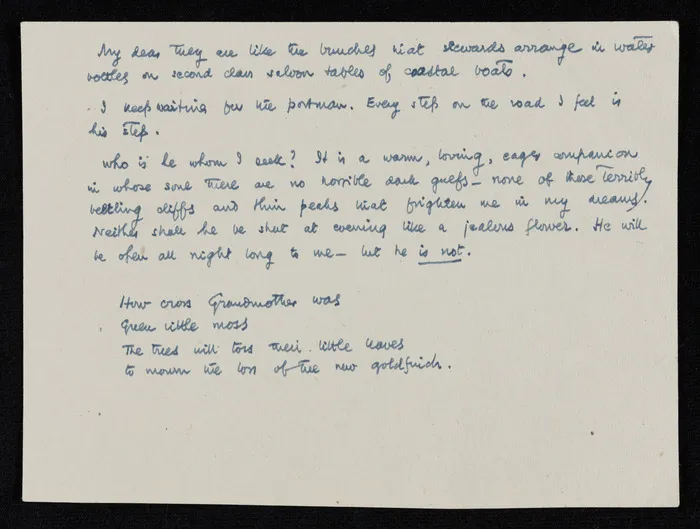 My dear They are like the bunches that stewards arrange in water
bottles on second class saloon tables of coastal boats.
I keep waiting for the postman. Every step on the road I feel is
his step.
Who is he whom I seek? It is a warm, loving, eager companion
in whose soul there are no horrible dark gulfs – none of these terribly
beetling cliffs and thin peaks that frighten me in my dreams.
Neither shall he be shut at evening like a jealous flower. He will
be open all night long to me – but he is not.
How cross Grandmother was
Green little moss
The trees will toss their little leaves
to mourn the loss of the new goldfinch.